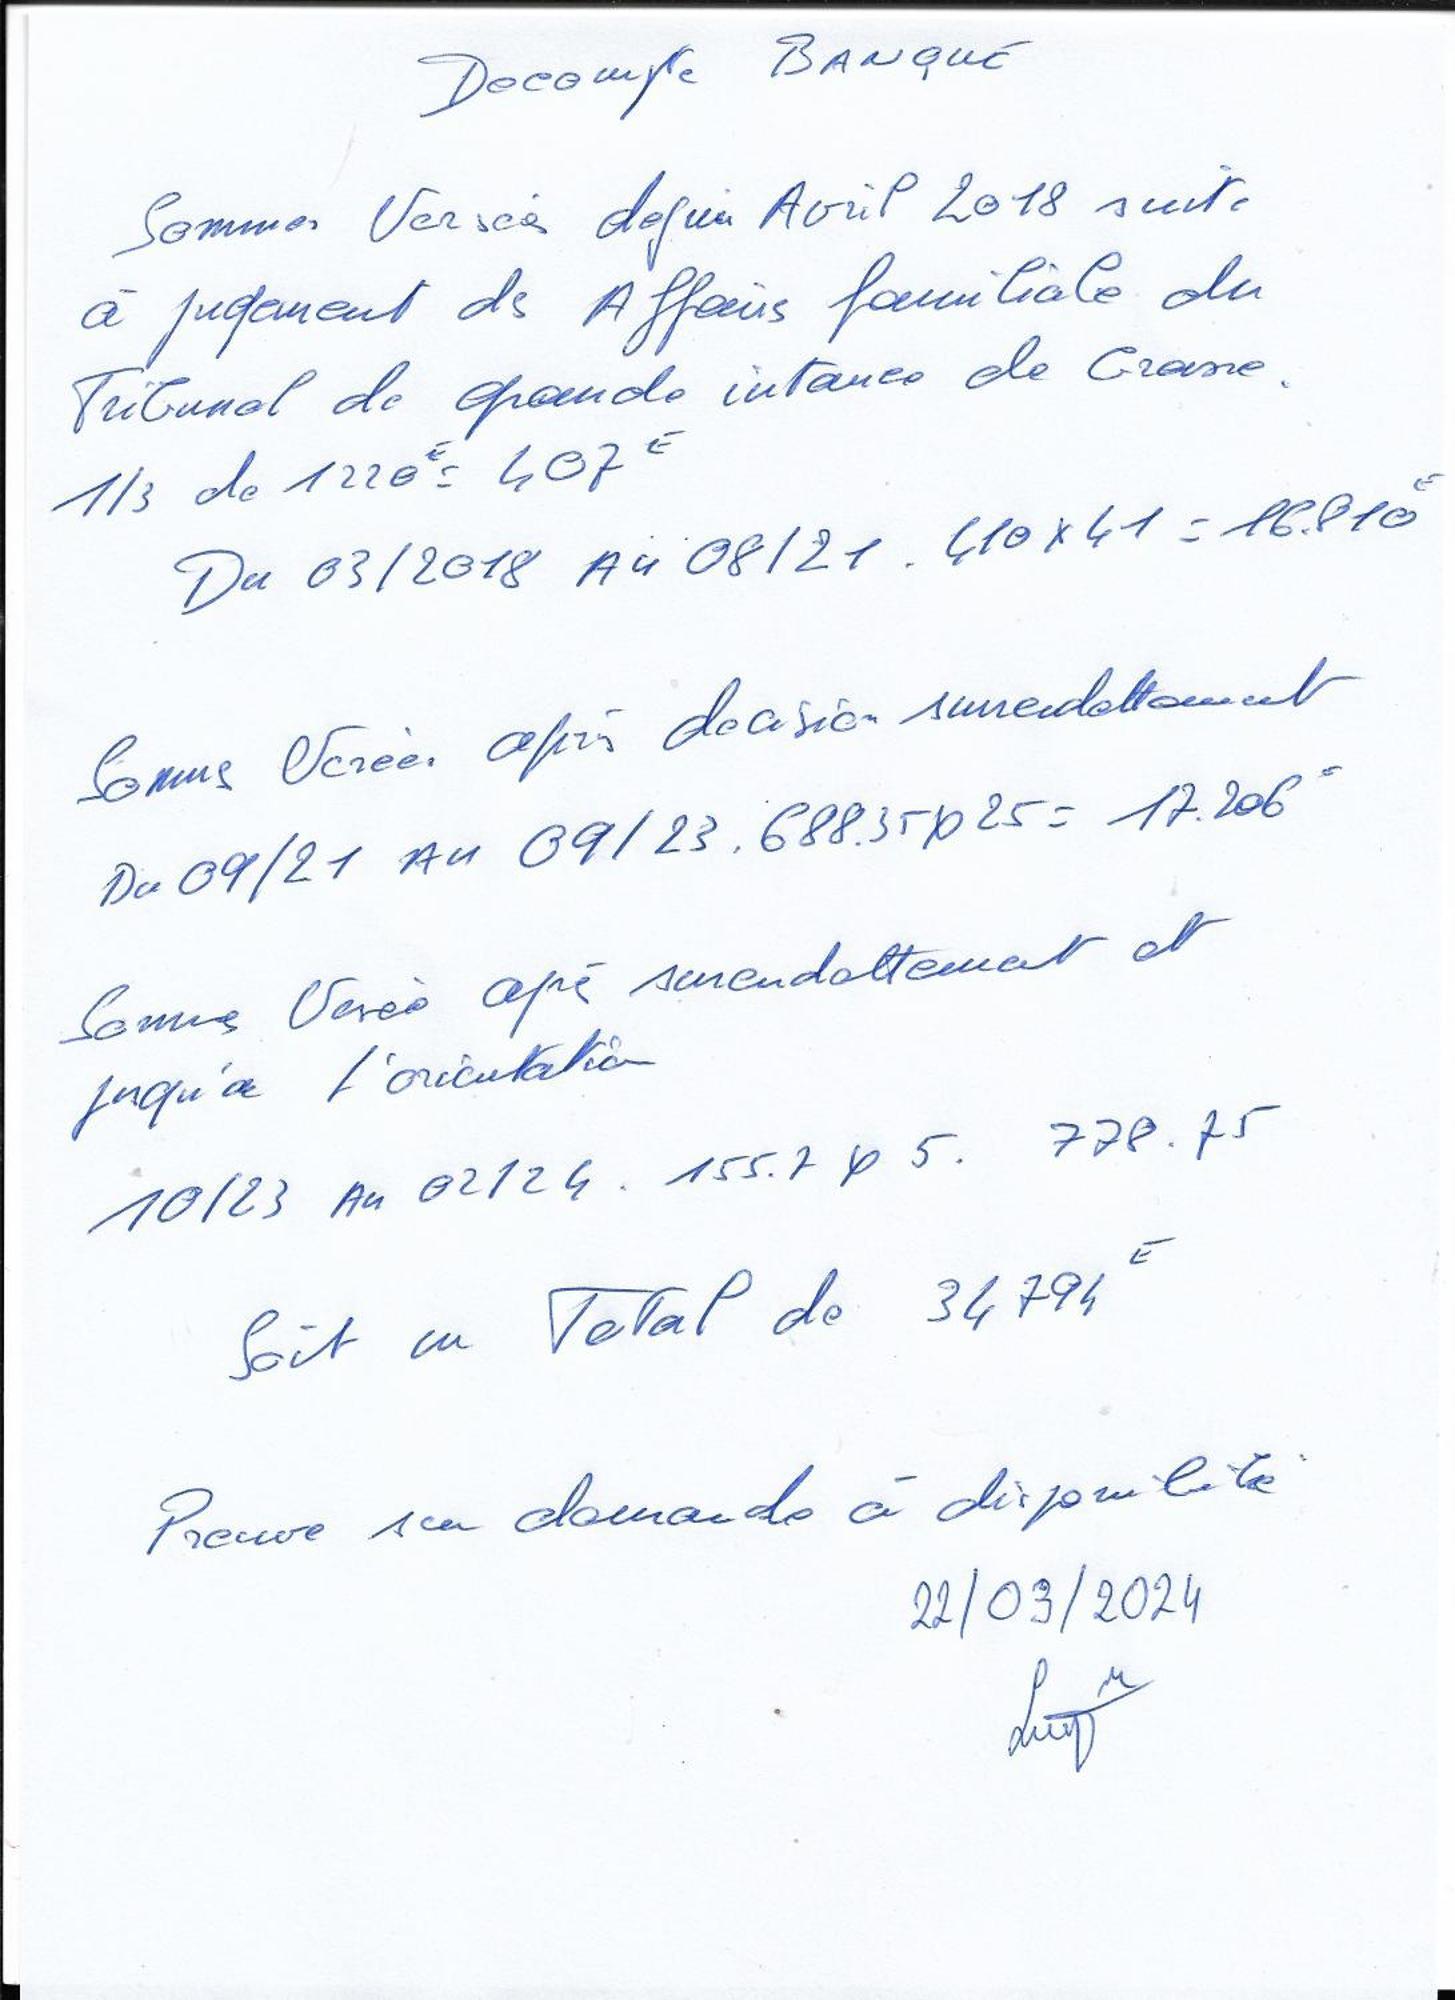 Decompte BANQUE
Sommes Versées depuis Avril 2018 suite
à jugement des Affaires familiale du
Tribunal de grande intance de Grasse.
1/3 de 1220€ = 407€
Du 03/2018 Au 08/21. 410 x 41 = 16.810€
Sommes Versées après decision surrendettement
Du 09/21 Au 09/23. 688.35 x 25 = 17.206€
Sommes Versée aprè surendettement et
jusqu'a l'orientation
10/23 Au 02/24. 155.7 x 5. 778.75
Soit un Total de 34794€
Preuve sur demande à disponibilité
22/03/2024